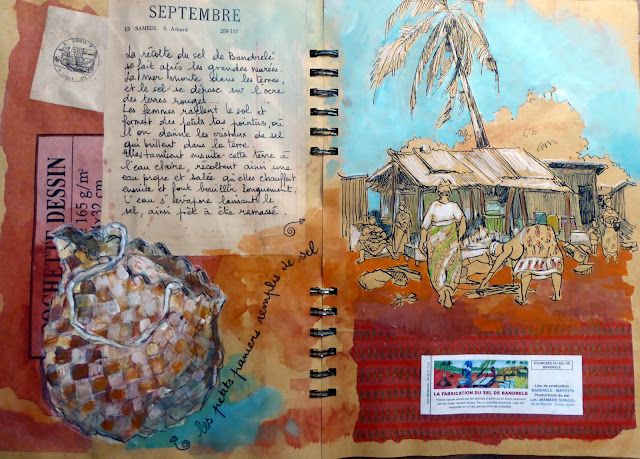 SEPTEMBRE
15 SAMEDI. S. Aubard
La récolte du sel de Bandrélé
se fait après les grandes marées.
La mer monte dans les terres,
et le sel se dépose sur l'ocre
des terres rouges
Les femmes raclent le sol et
forment des petits tas pointus, où
l'on devine les cristaux de sel
qui brillent dans la terre.
Elles tamisent ensuite cette terre à
l'eau claire, récoltent ainsi une
eau propre et salée qu'elles chauffent
ensuite et font bouillir longuement.
L'eau s'évapore laissant le
sel, ainsi prêt à être ramassé.
OCHETTE DESSIN
165 g/m²
32 cm
les petits paniers remplis de sel
ECOMUSEE DU SEL DE
BANDRELE
LA FABRICATION DU SEL DE BANDRELE
Lieu de production :
BANDRELE - MAYOTTE
Producteurs du sel :